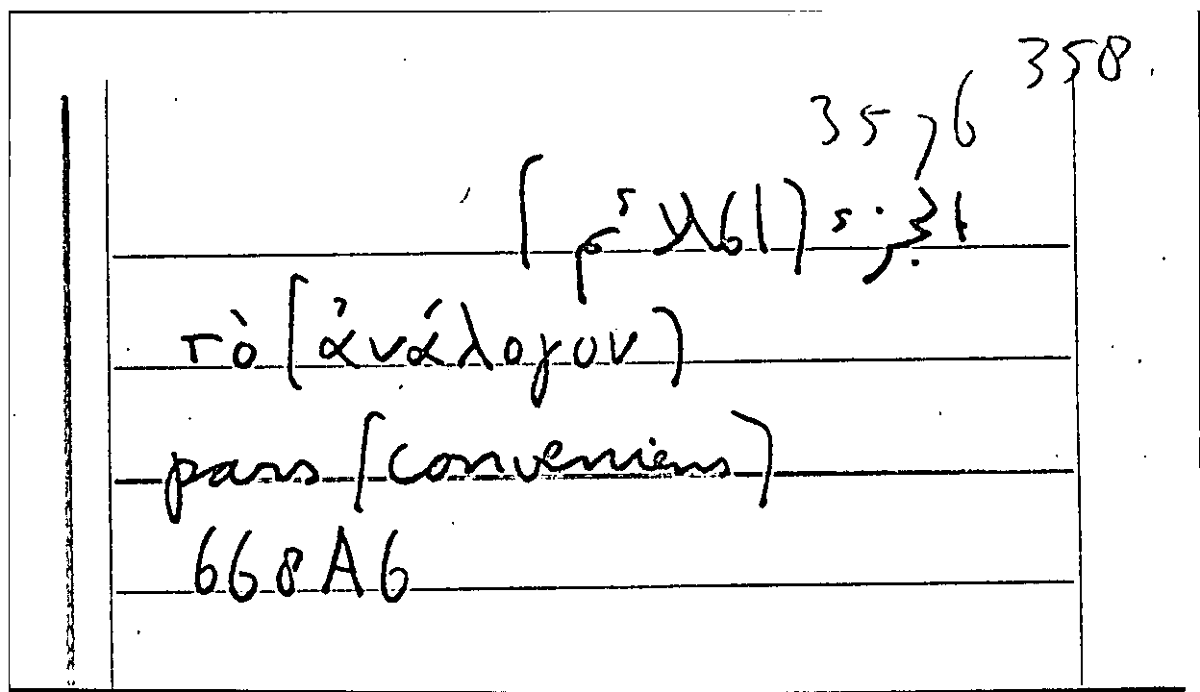 358
35,6
الجزء (الملائم)
τὸ (ἀνάλογον)
pars (conveniens)
668A6